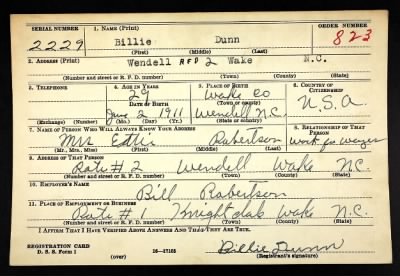 SERIAL NUMBER 1. NAME (Print) ORDER NUMBER
2229 Billie Dunn 823
(First) (Middle) (Last)
2. ADDRESS (Print) Wendell RFD 2 Wake N.C.
(Number and street or R. F. D. number) (Town) (County) (State)
3. TELEPHONE 4. AGE IN YEARS 5. PLACE OF BIRTH 6. COUNTRY OF CITIZENSHIP
29 Wake Co
DATE OF BIRTH U.S.A
2 1911 Wendell N.C.
(Exchange) (Number) (Mo.) (Day) (Yr.) (Town or county) (State or country)
7. NAME OF PERSON WHO WILL ALWAYS KNOW YOUR ADDRESS 8. RELATIONSHIP OF THAT PERSON
Mrs Robertson work for wages
(Mr., Mrs., Miss) (First) (Middle) (Last)
9. ADDRESS OF THAT PERSON
Rout # 2 Wendell Wake N.C.
(Number and street or R. F. D. number) (Town) (County) (State)
10. EMPLOYER'S NAME
Bill Robertson
11. PLACE OF EMPLOYMENT OR BUSINESS
Rout # 1 Wake N.C.
(Number and street or R. F. D. number) (Town) (County) (State)
I AFFIRM THAT I HAVE VERIFIED ABOVE ANSWERS AND THAT THEY ARE TRUE.
Billie Dunn
REGISTRATION CARD
D. S. S. Form 1 (over) 16-17105 (Registrant's signature)